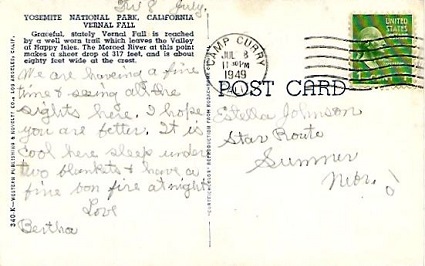 Fri 8 July.
YOSEMITE NATIONAL PARK, CALIFORNIA
VERNAL FALL
Graceful, stately Vernal Fall is reached
by a well worn trail which leaves the Valley
at Happy Isles. The Merced River at this point
makes a sheer drop of 317 feet, and is about
eighty feet wide at the crest.
We are having a fine
time & seeing all the
sights here. I hope
you are better. It is
cool here sleep under
two blankets & have a
fine bon fire at night
Love
Bertha
340.K—WESTERN PUBLISHING & NOVELTY CO., LOS ANGELES, CALIF.
CAMP CURRY
JUL 8
PM
1949
UNITED STATES
POST CARD
Estella Johnson
Star Route
Sumner
Nebr.